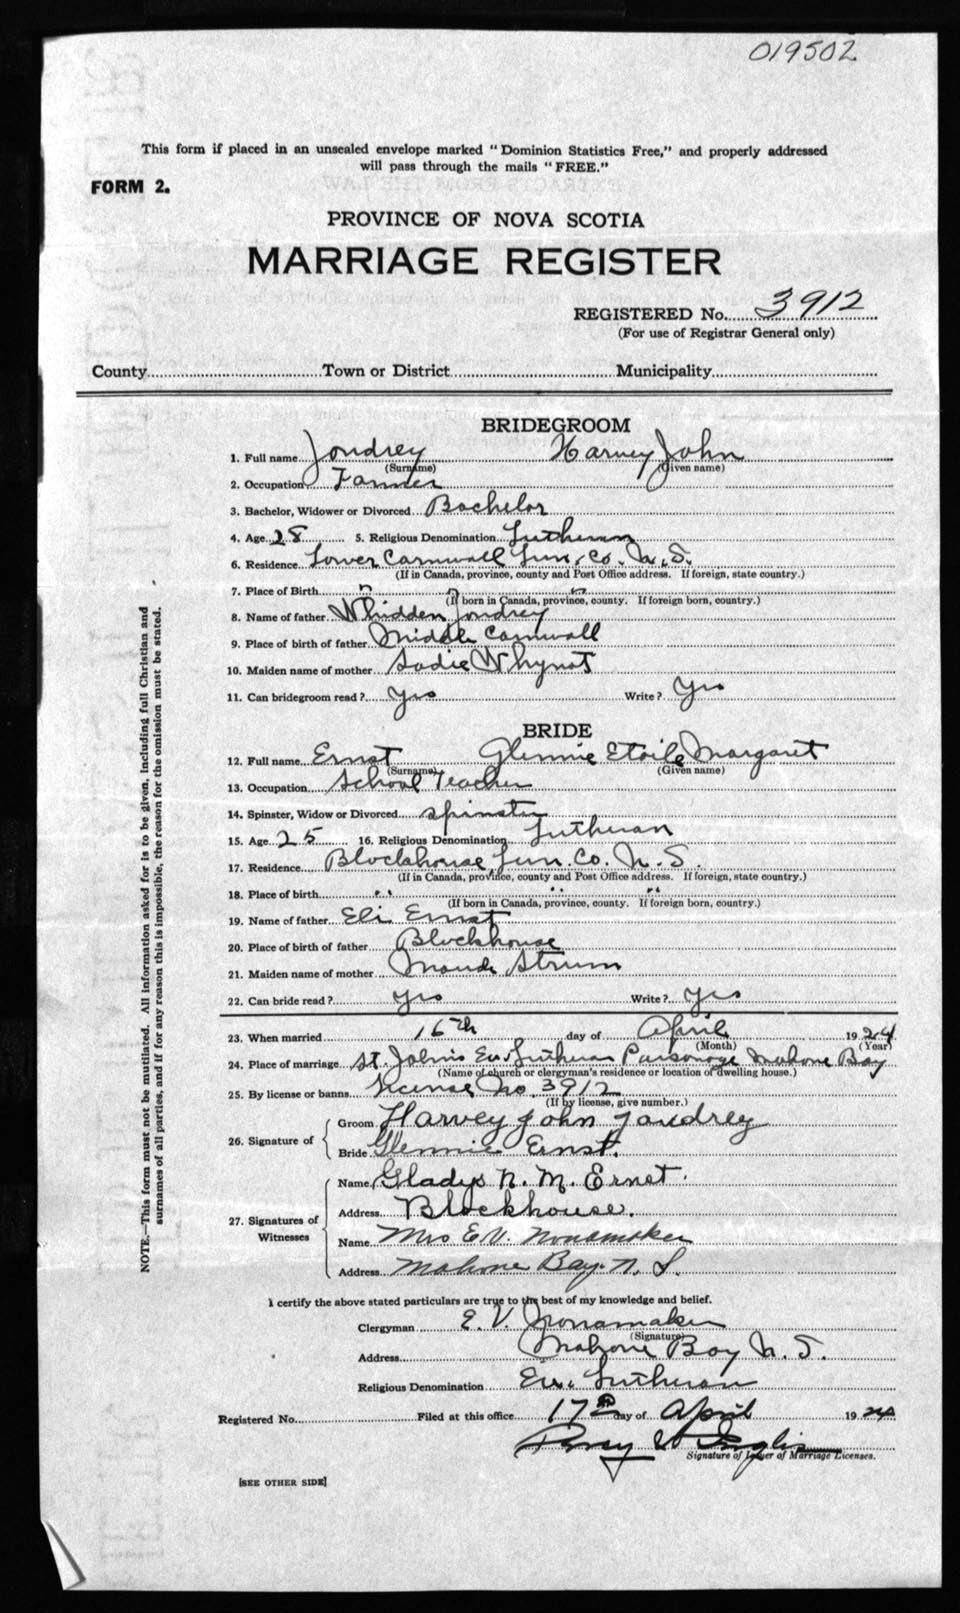 019502
This form if placed in an unsealed envelope marked "Dominion Statistics Free," and properly addressed
will pass through the mails "FREE."
FORM 2.
PROVINCE OF NOVA SCOTIA
MARRIAGE REGISTER
REGISTERED No. 3912
(For use of Registrar General only)
County Town or District Municipality
BRIDEGROOM
1. Full name Joudrey Harvey John
(Surname) (Given name)
2. Occupation Farmer
3. Bachelor, Widower or Divorced Bachelor
4. Age 28 5. Religious Denomination Lutheran
6. Residence Lower Cornwall Lun. Co. N.S.
(If in Canada, province, county and Post Office address. If foreign, state country.)
7. Place of Birth " " "
(If born in Canada, province, county. If foreign born, country.)
8. Name of father Whidden Joudrey
9. Place of birth of father Middle Cornwall
10. Maiden name of mother Sadie Whynot
11. Can bridegroom read? Yes Write? Yes
BRIDE
12. Full name Ernst Glennie Etoile Margaret
(Surname) (Given name)
13. Occupation School Teacher
14. Spinster, Widow or Divorced Spinster
15. Age 25 16. Religious Denomination Lutheran
17. Residence Blockhouse Lun. Co. N.S.
(If in Canada, province, county and Post Office address. If foreign, state country.)
18. Place of birth " " "
(If born in Canada, province, county. If foreign born, country.)
19. Name of father Eli Ernst
20. Place of birth of father Blockhouse
21. Maiden name of mother Maude Strum
22. Can bride read? Yes Write? Yes
23. When married 16th day of April 1924
(Month) (Year)
24. Place of marriage St. John's Ev. Lutheran Parsonage Mahone Bay
(Name of church or clergyman's residence or location of dwelling house.)
25. By license or banns License No. 3912
(If by license, give number.)
26. Signature of
Groom Harvey John Joudrey
Bride Glennie Ernst.
27. Signatures of Witnesses
Name Gladys N. M. Ernst.
Address Blockhouse.
Name Mrs E. V. Nonamaker
Address Mahone Bay. N. S.
I certify the above stated particulars are true to the best of my knowledge and belief.
Clergyman E. V. Nonamaker
(Signature)
Address Mahone Bay N. S.
Religious Denomination Ev. Lutheran
Registered No. Filed at this office 17th day of April 1924
Signature of Issuer of Marriage Licenses.
[SEE OTHER SIDE]
NOTE.—This form must not be mutilated. All information asked for is to be given, including full Christian and
surnames of all parties, and if for any reason this is impossible, the reason for the omission must be stated.